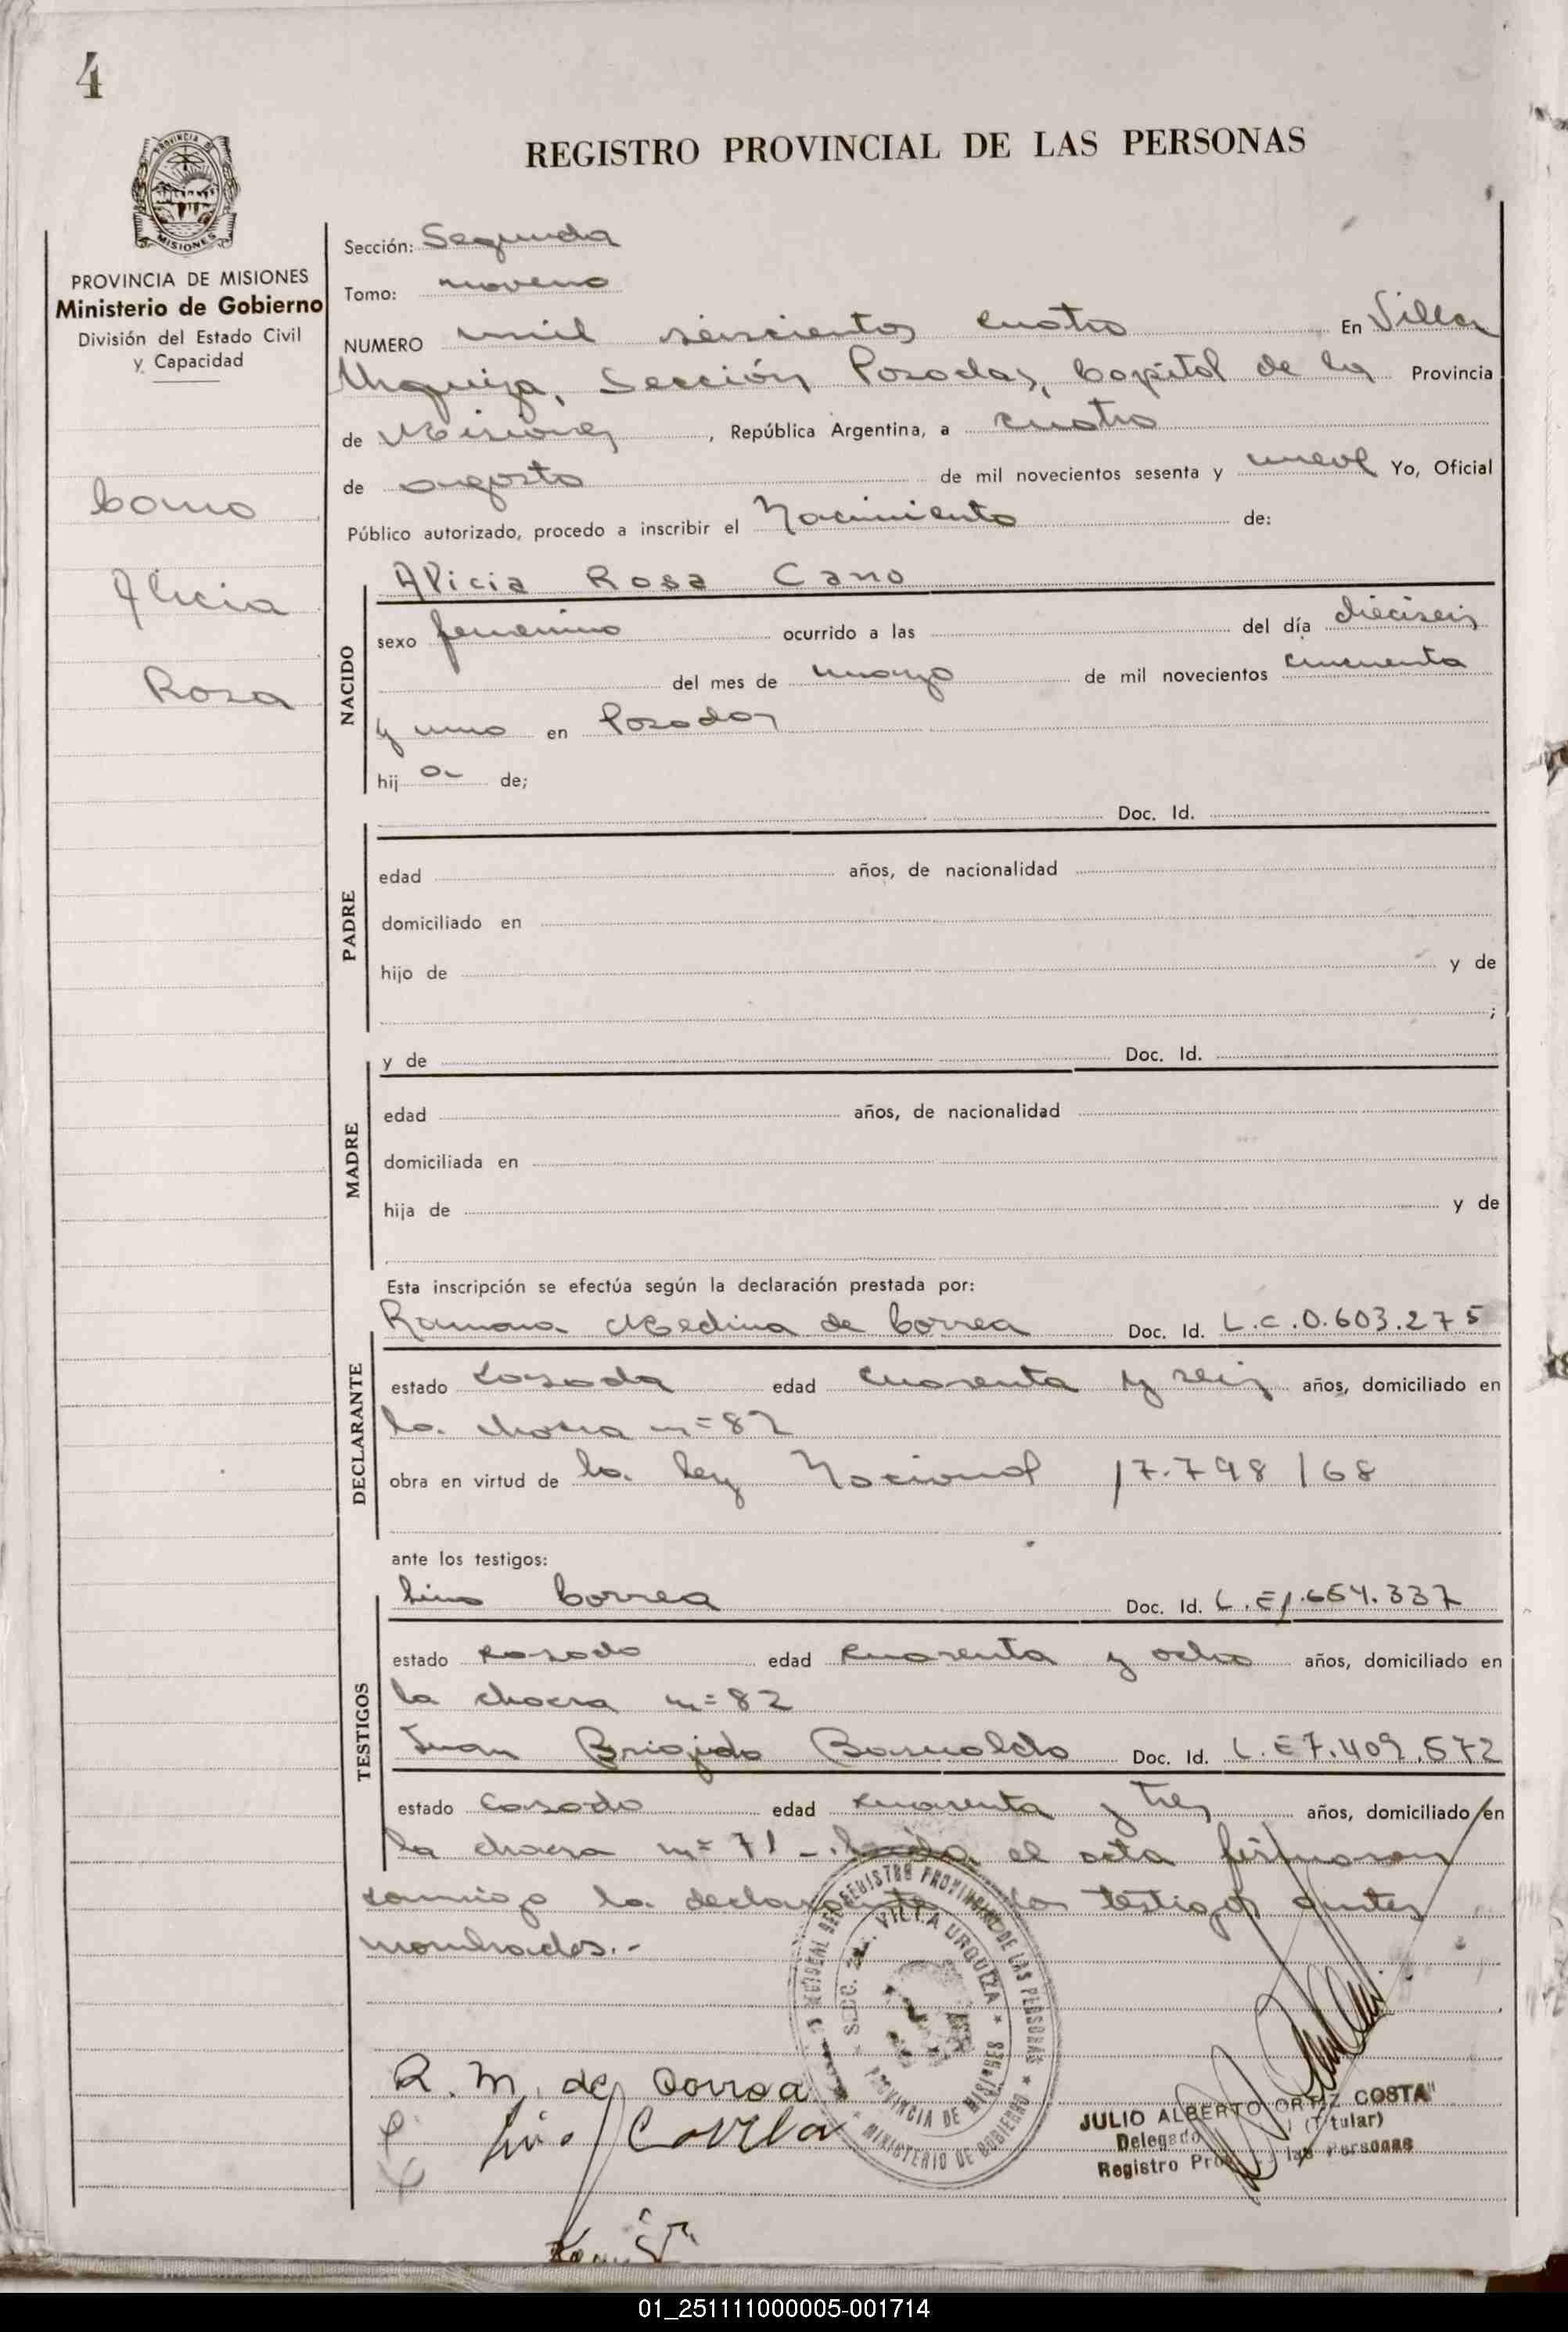 4
REGISTRO PROVINCIAL DE LAS PERSONAS
PROVINCIA DE MISIONES
Ministerio de Gobierno
División del Estado Civil
y Capacidad
Cano
Alicia
Rosa
Sección: Segunda
Tomo: noveno
NUMERO mil seiscientos cuatro En Villa
Urquiza, Sección Posadas, Capital de la Provincia
de Misiones, República Argentina, a cuatro
de agosto de mil novecientos sesenta y nueve Yo, Oficial
Público autorizado, procedo a inscribir el Nacimiento de:
NACIDO
Alicia Rosa Cano
sexo femenino ocurrido a las del día dieciseis
del mes de marzo de mil novecientos cincuenta
y uno en Posadas
hij a de;
PADRE
Doc. Id.
edad años, de nacionalidad
domiciliado en
hijo de y de
;
MADRE
y de Doc. Id.
edad años, de nacionalidad
domiciliada en
hija de y de
Esta inscripción se efectúa según la declaración prestada por:
DECLARANTE
Ramona Medina de Correa Doc. Id. L.C.0.603.275
estado casada edad cuarenta y seis años, domiciliado en
la chacra n=82
obra en virtud de la ley Nacional 17.798/68
ante los testigos:
TESTIGOS
Lino Correa Doc. Id. L.E1.654.337
estado casado edad cuarenta y ocho años, domiciliado en
la chacra n=82
Juan Brigido Doc. Id. L.E7.409.572
estado casado edad cuarenta y tres años, domiciliado en
la chacra n=71 -. Leída el acta firmaron
conmigo la declarante los testigos antes
nombrados.-
REGISTRO PROVINCIAL DE LAS PERSONAS
SECC. VILLA URQUIZA
PROVINCIA DE MISIONES
MINISTERIO DE GOBIERNO
R. M. de Correa
Lino Correa
JULIO ALBERTO ORTIZ COSTA
Delegado (Titular)
Registro las Personas
01_251111000005-001714